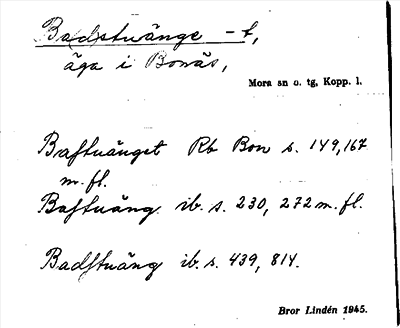 Ba(d)stuänge -t,
äga i Bonäs,
Mora sn o. tg, Kopp. l.
Baftuänget Rb Bon s. 149, 167
m. fl.
Baftuäng ib. s. 230, 272 m. fl.
Badstuäng ib. s. 439, 814.
Bror Lindén 1945.